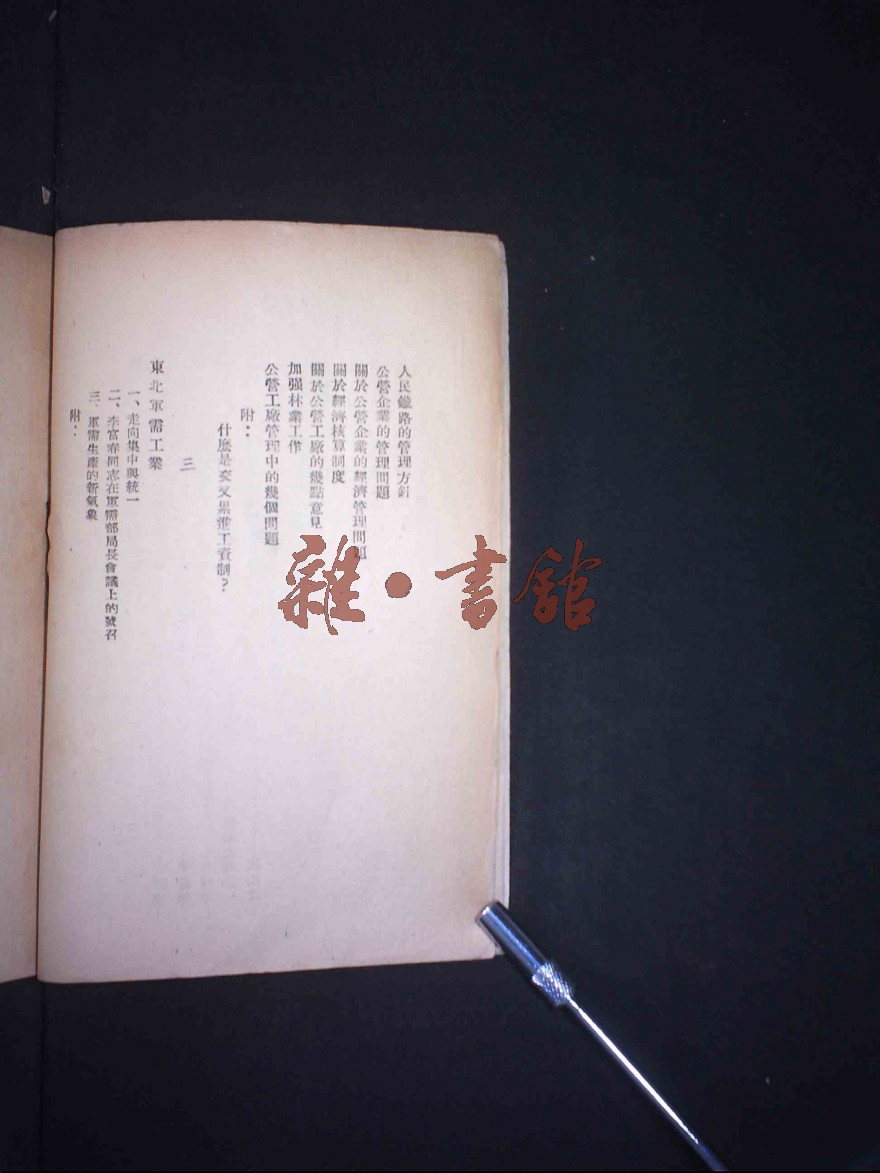 人民鐵路的管理方針
公營企業的管理問題
關於公營企業的經濟管理問題
關於經濟核算制度
關於公營工廠的幾點意見
加强林業工作
公營工廠管理中的幾個問題
附：
什麽是交叉累進工資制？
三
東北軍需工業
一、走向集中與統一
二、李富春同志在軍需部局長會議上的號召
三、軍需生產的新氣象
附：
雜·書舘